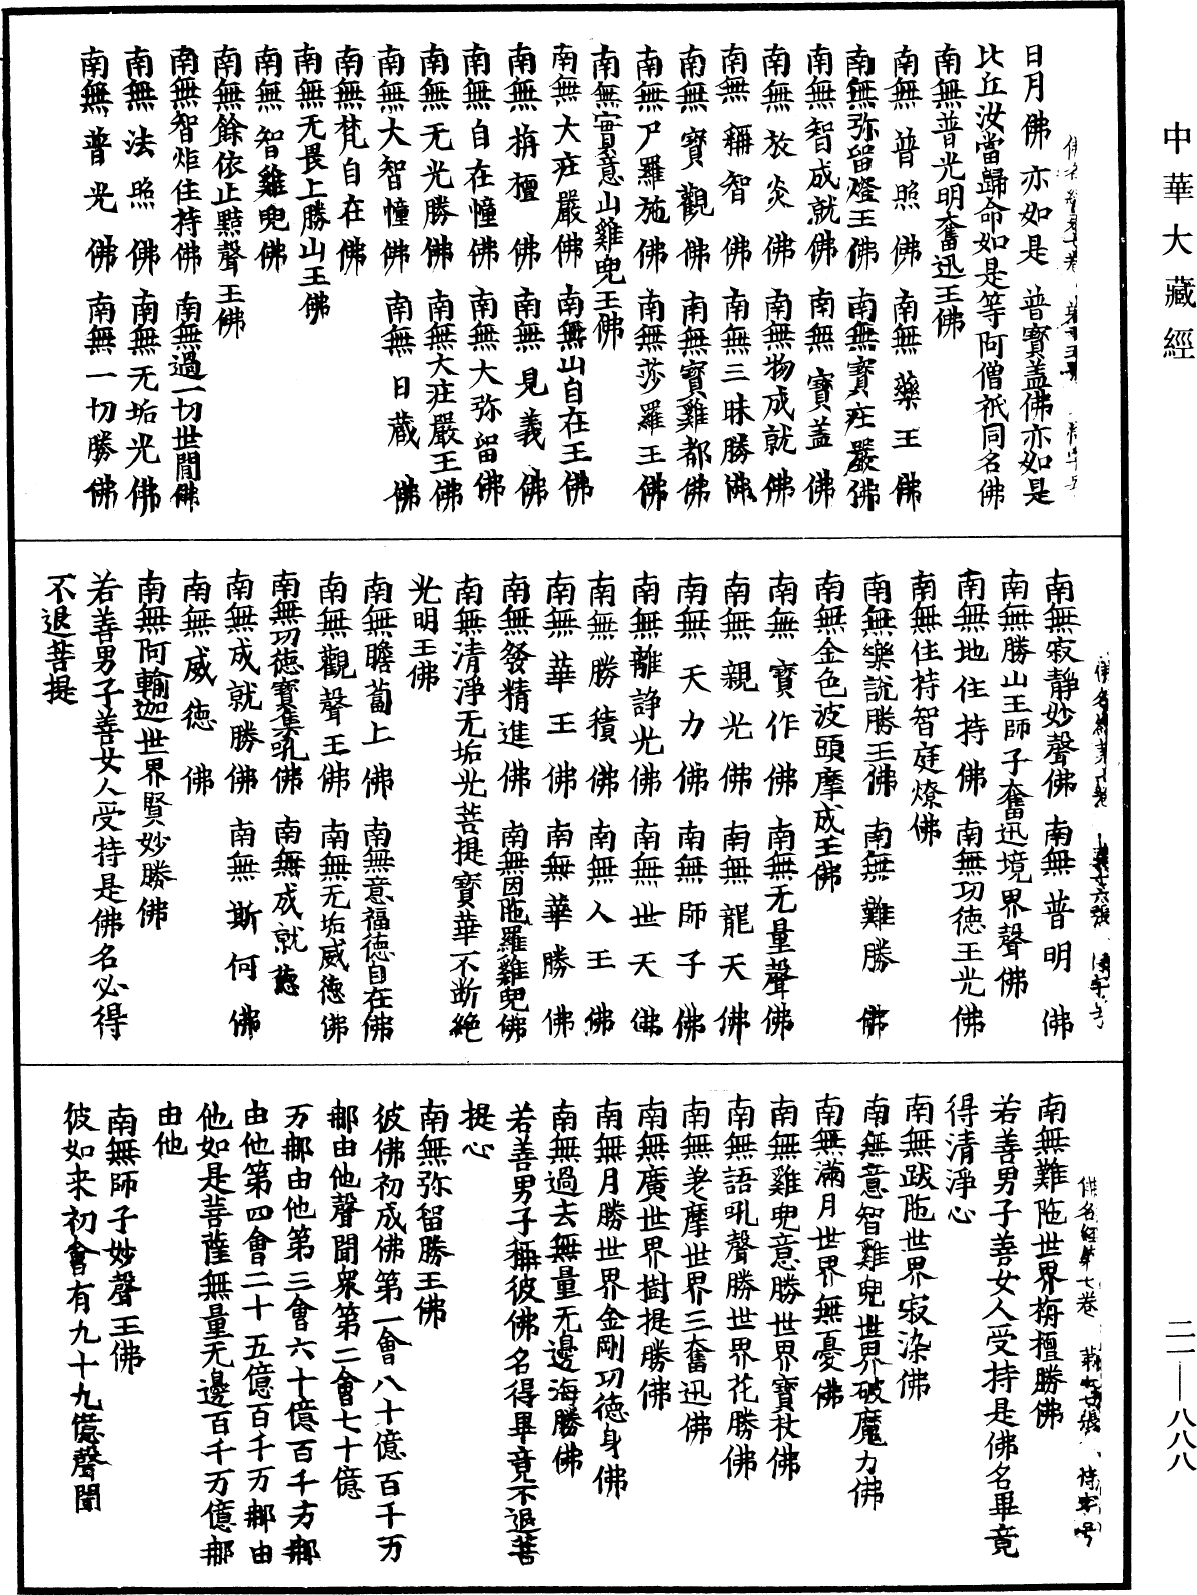 中華大藏經
日月佛亦如是 普寶盖佛亦如是
比丘汝當歸命如是等阿僧祇同名佛
南無普光明奮迅王佛
南無普照佛 南無藥王佛
南無弥留燈王佛 南無寶庄嚴佛
南無智成就佛 南無寶盖佛
南無放炎佛 南無物成就佛
南無稱智佛 南無三昧勝佛
南無寶觀佛 南無寶雞都佛
南無尸羅施佛 南無莎羅王佛
南無實意山雞兜王佛
南無大庄嚴佛 南無山自在王佛
南無栴檀佛 南無見義佛
南無自在憧佛 南無大弥留佛
南無无光勝佛 南無大庄嚴王佛
南無大智憧佛 南無日藏佛
南無梵自在佛
南無无畏上勝山王佛
南無智雞兜佛
南無餘依止黠聲王佛
南無智炸住持佛 南無過一切世間佛
南無法照佛 南無无垢光佛
南無普光佛 南無一切勝佛
南無寂靜妙聲佛 南無普明佛
南無勝山王師子奮迅境界聲佛
南無地住持佛 南無功德王光佛
南無住持智庭燎佛
南無樂說勝王佛 南無難勝佛
南無金色波頭摩成王佛
南無寶作佛 南無无量聲佛
南無親光佛 南無龍天佛
南無天力佛 南無師子佛
南無離諍光佛 南無世天佛
南無勝積佛 南無人王佛
南無華王佛 南無華勝佛
南無發精進佛 南無因陁羅雞兜佛
南無清淨无垢光菩提寶華不断絶
光明王佛
南無瞻蔔上佛 南無意福德自在佛
南無觀聲王佛 南無无垢威德佛
南無功德寶集吼佛 南無成就德
南無成就勝佛 南無斯何佛
南無威德佛
南無阿輸迦世界賢妙勝佛
若善男子善女人受持是佛名必得
不退菩提
佛名經第七卷
南無難陁世界栴檀勝佛
若善男子善女人受持是佛名畢竟
得清淨心
南無跋陁世界寂染佛
南無意智雞兜世界破魔力佛
南無滿月世界無憂佛
南無雞兜意勝世界寶杖佛
南無語吼聲勝世界花勝佛
南無老摩世界三奮迅佛
南無廣世界樹提勝佛
南無月勝世界金剛功德身佛
南無過去無量无邊海勝佛
若善男子稱彼佛名得畢竟不退菩
提心
南無弥留勝王佛
彼佛初成佛第一會八十億百千万
𨚗由他聲聞衆第二會七十億
万𨚗由他第三會六十億百千万𨚗
由他第四會二十五億百千万𨚗由
他如是菩薩無量无邊百千万億𨚗
由他
南無師子妙聲王佛
彼如来初會有九十九億聲聞
二一—八八八